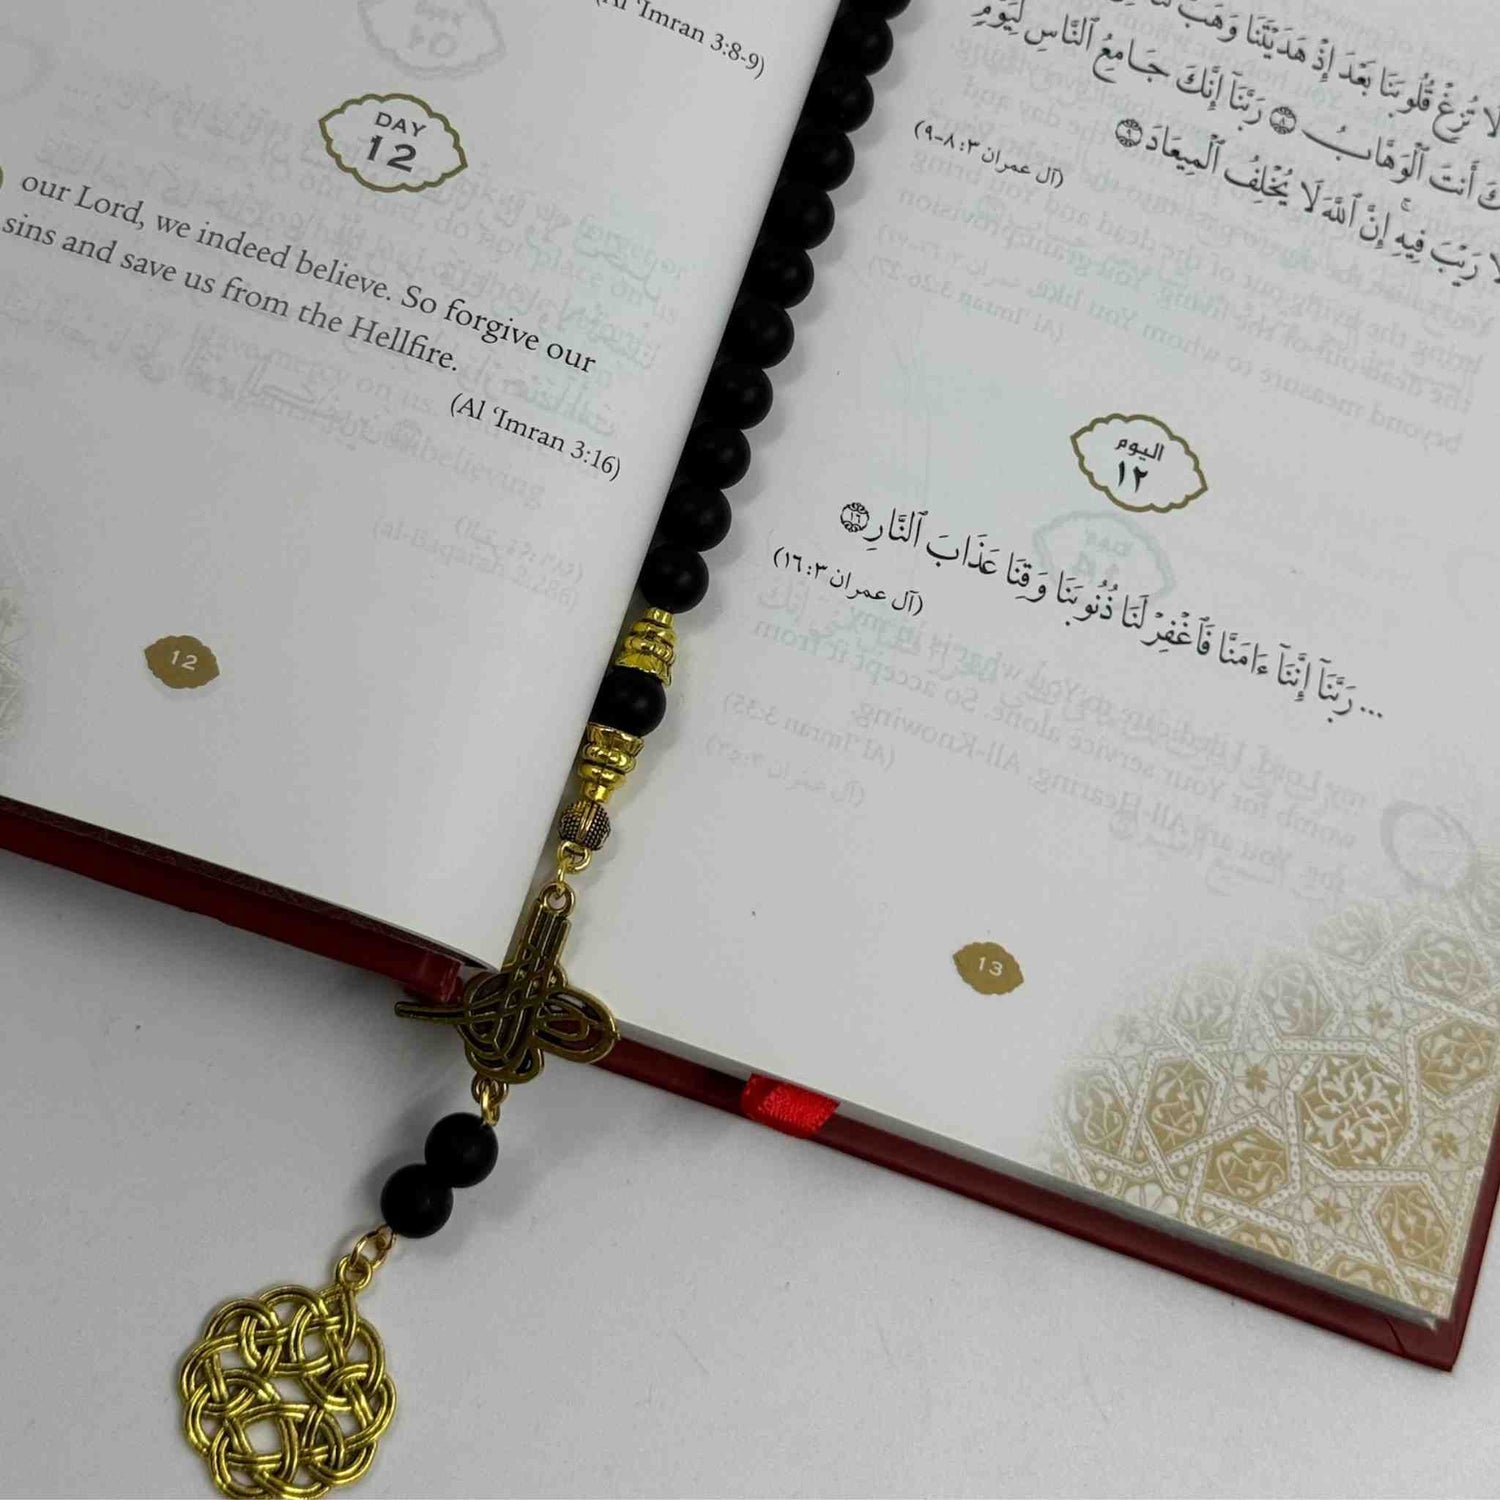 (Al 'Imran 3:8-9)
DAY
12
our Lord, we indeed believe. So forgive our
sins and save us from the Hellfire.
(Al 'Imran 3:16)
12
لَا تُزِغْ قُلُوبَنَا بَعْدَ إِذْ هَدَيْتَنَا وَهَبْ
أَنتَ ٱلْوَهَّابُ ۝٨ رَبَّنَآ إِنَّكَ جَامِعُ ٱلنَّاسِ لِيَوْمٍ
لَا رَيْبَ فِيهِ ۚ إِنَّ ٱللَّهَ لَا يُخْلِفُ ٱلْمِيعَادَ ۝٩
(آل عمران ٣: ٨-٩)
اليوم
١٢
... رَبَّنَآ إِنَّنَآ ءَامَنَّا فَٱغْفِرْ لَنَا ذُنُوبَنَا وَقِنَا عَذَابَ ٱلنَّارِ ۝١٦
(آل عمران ٣: ١٦)
13